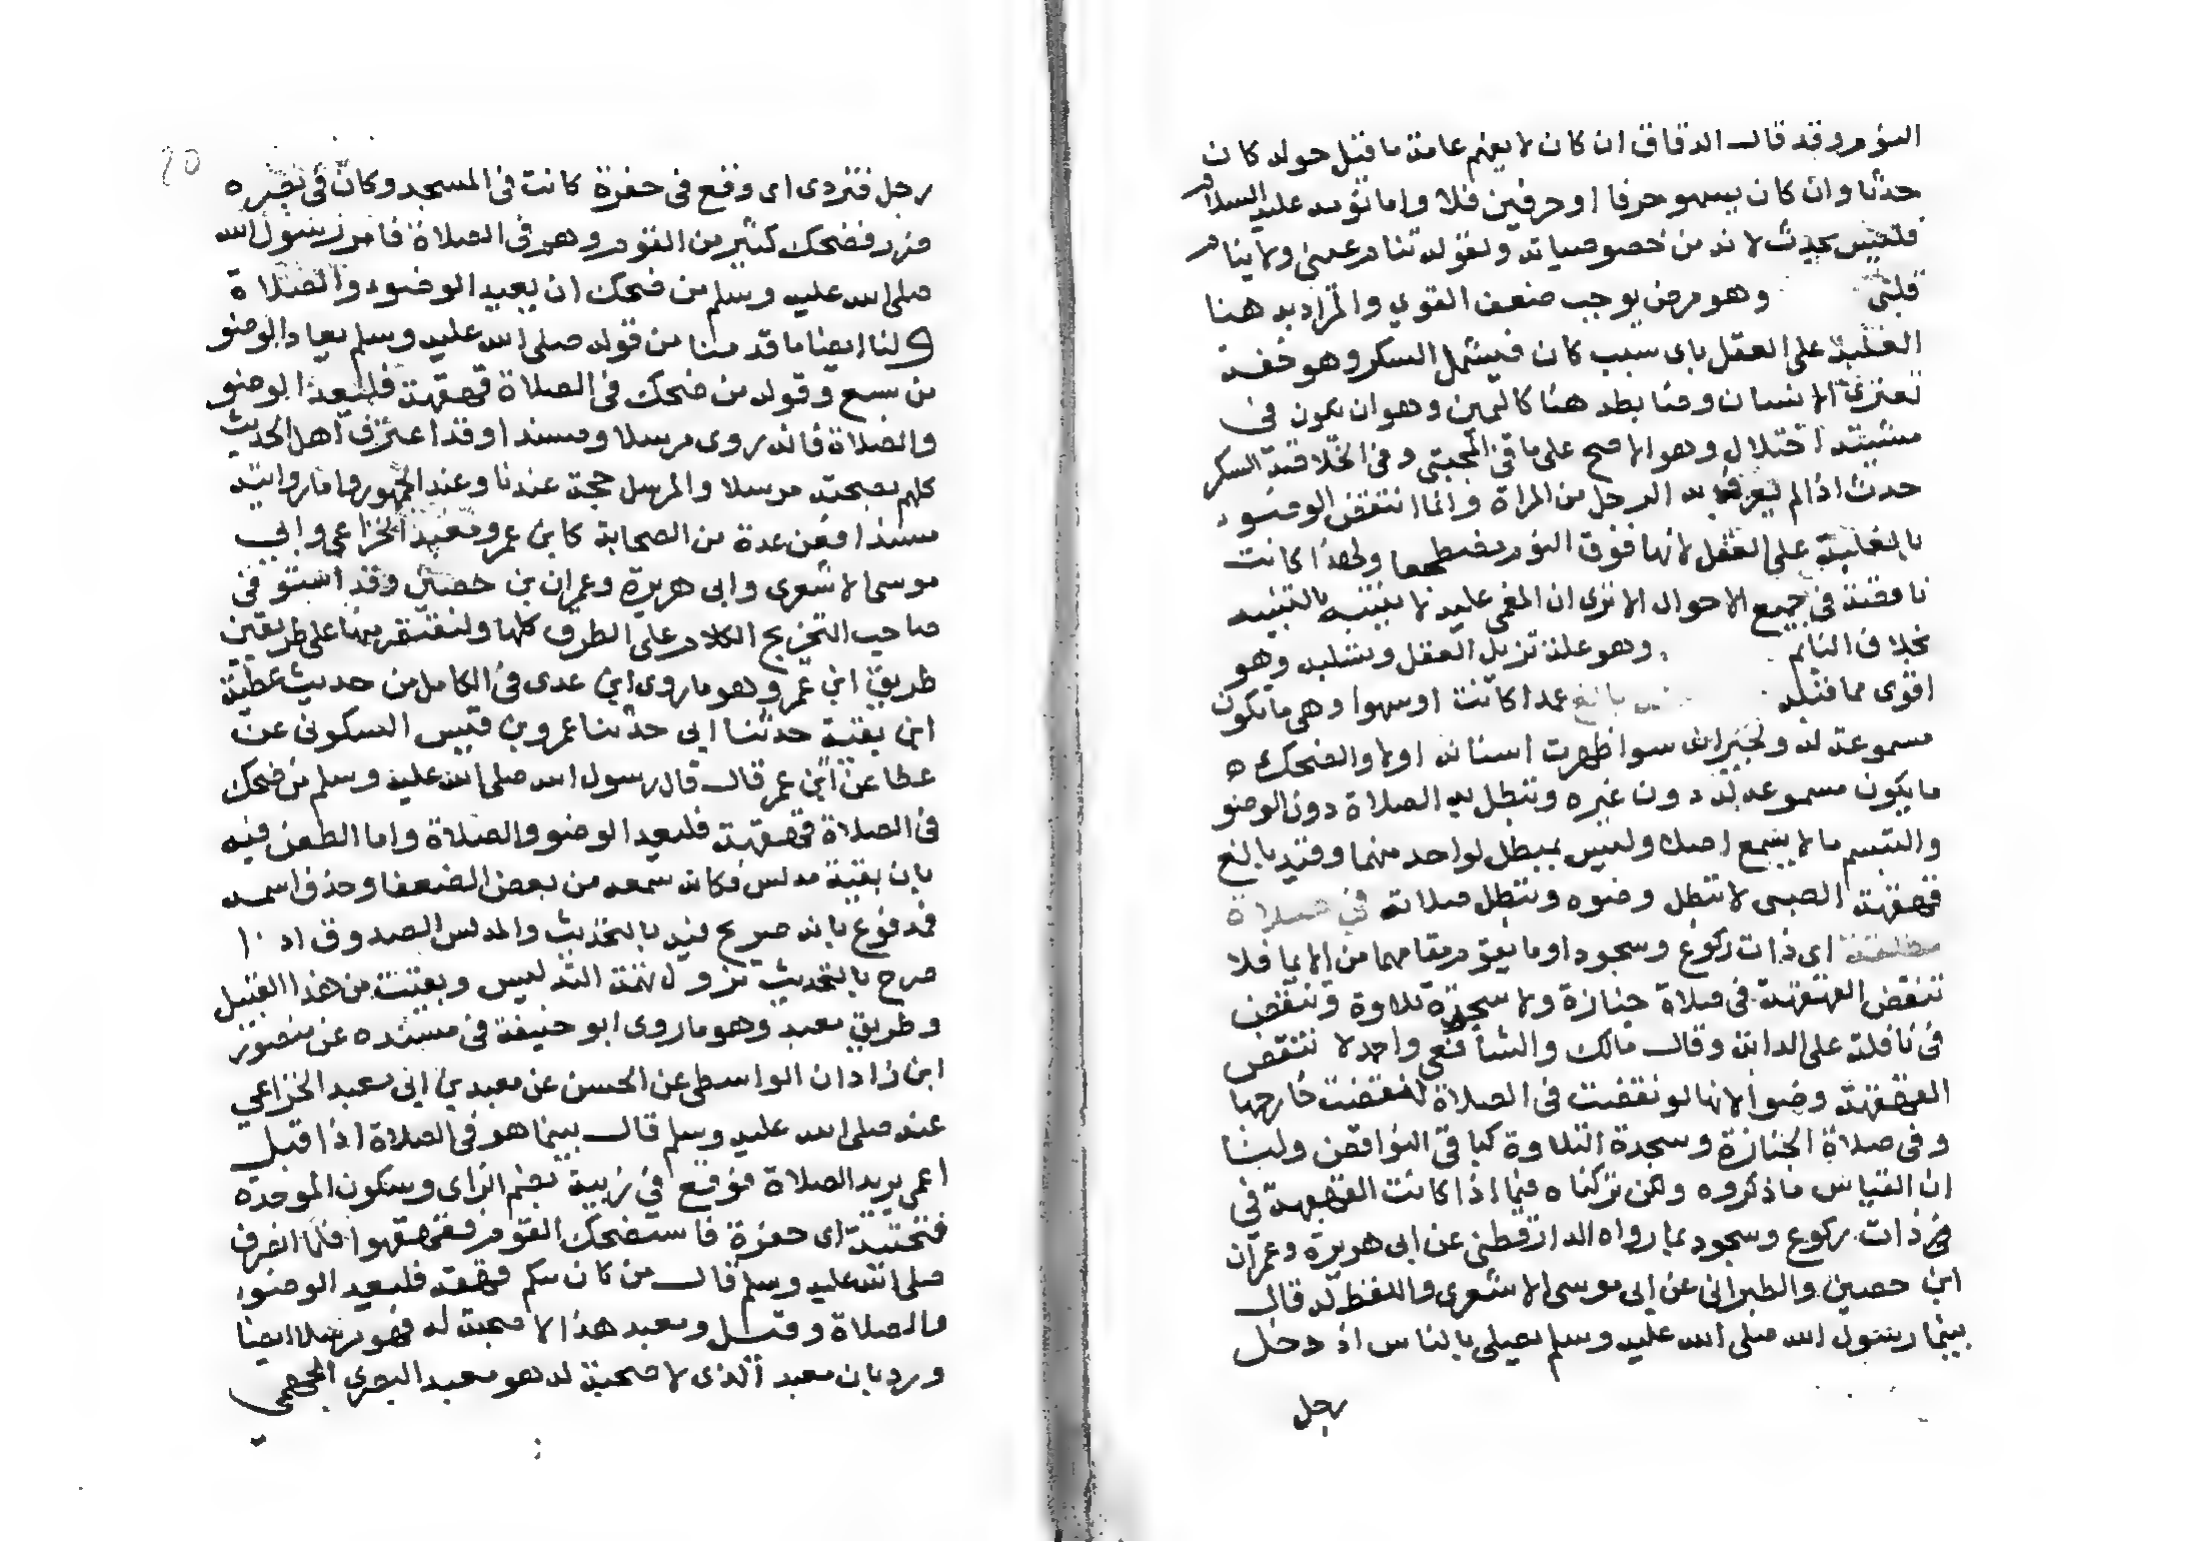 النوم وقد قال الدقاق ان كان لا يفهم عامة ما قيل حوله كان
حدثا وان كان يسهو حرفا او حرفين فلا واما نومه عليه السلام
فليس بحدث لانه من خصوصياته ولقوله تنام عيني ولا ينام
قلبى وهو مرض يوجب ضعف القوي والمراد به هنا
الغلبة على العقل باى سبب كان فيشمل السكر وهو خفة
تعتري الانسان وضابطه هنا كاليمين وهو ان يكون في
مشيته اختلال وهو الاصح على ما في المجتبى وفي الخلاصة السكر
حدث اذا لم يعرف به الرجل من المراة وانما انتقض الوضوء
بالغلبة على العقل لانها فوق النوم مضطجعا ولهذا كانت
ناقضة في جميع الاحوال الا ترى ان المغمى عليه لا ينتبه بالتنبيه
بخلاف النائم وهو علة تزيل العقل وتسلبه وهو
اقوى مما قبله بالغ عمدا كانت او سهوا وهي ما يكون
مسموعة له ولجيرانه سوا ظهرت اسنانه اولا والضحك
ما يكون مسموعه له دون غيره وتبطل به الصلاة دون الوضو
والتبسم ما لا يسمع اصلا وليس بمبطل لواحد منهما وقيد بالغ
قهقهة الصبى لا تبطل وضوه وتبطل صلاته في صلاة
مطلقة اى ذات ركوع وسجود او ما يقوم مقامهما من الايما فلا
تنقض القهقهة في صلاة جنازة ولا سجدة تلاوة وتنقض
في نافلة على الدابة وقال مالك والشافعي واحمد لا تنقض
القهقهة وضوا لانها لو نقضت فى الصلاة لنقضت خارجها
وفي صلاة الجنازة وسجدة التلاوة كباقي النواقض ولنا
ان القياس ما ذكروه ولكن تركناه فيما اذا كانت القهقهة في
ذات ركوع وسجود بما رواه الدارقطني عن ابى هريرة وعمران
ابن حصين والطبرانى عن ابى موسى الاشعرى واللفظ له قال
بينما رسول الله صلى الله عليه وسلم يصلى بالناس اذ دخل
رجل
رجل فتردى اى وقع فى حفرة كانت فى المسجد وكان فى بصره
ضرر فضحك كثير من القوم وهم فى الصلاة فامر رسول الله
صلى الله عليه وسلم من ضحك ان يعيد الوضوء والصلاة
ولنا ايضا ما قدمنا من قوله صلى الله عليه وسلم يعاد الوضو
من سبع وقوله من ضحك فى الصلاة قهقهة فليعد الوضو
والصلاة فانه روى مرسلا ومسندا وقد اعترف اهل الحديث
كلهم بصحته مرسلا والمرسل حجة عندنا وعند الجمهور واما روايته
مسندا فعن عدة من الصحابة كابن عمر ومعبد الخزاعي وابي
موسى الاشعرى وابى هريرة وعمران بن حصين وقد استوفى
صاحب التخريج الكلام على الطرق كلها ولنقتصر منها على طريقين
طريق ابن عمر وهو ما روى ابن عدى فى الكامل من حديث عطية
ابن بقية حدثنا ابى حدثنا عمرو بن قيس السكونى عن
عطا عن ابن عمر قال قال رسول الله صلى الله عليه وسلم من ضحك
فى الصلاة قهقهة فليعد الوضو والصلاة واما الطعن فيه
بان بقية مدلس فكانه سمعه من بعض الضعفا وحذف اسمه
فمدفوع بانه صرح فيه بالتحديث والمدلس الصدوق اذا
صرح بالتحديث تزول تهمة التدليس وبقية من هذا القبيل
وطريق معبد وهو ما روى ابو حنيفة فى مسنده عن منصور
ابن زاذان الواسطى عن الحسن عن معبد بن ابى معبد الخزاعي
عنه صلى الله عليه وسلم قال بينما هو فى الصلاة اذ اقبل
اعمى يريد الصلاة فوقع في زبية بضم الزاى وسكون الموحدة
فتحتية اى حفرة فاستضحك القوم فقهقهوا فلما انصرف
صلى الله عليه وسلم قال من كان منكم قهقه فليعد الوضوء
والصلاة وقيل ومعبد هذا لا صحبة له فهو مرسلا ايضا
ورد بان معبد الذى لا صحبة له هو معبد البصرى الجهني